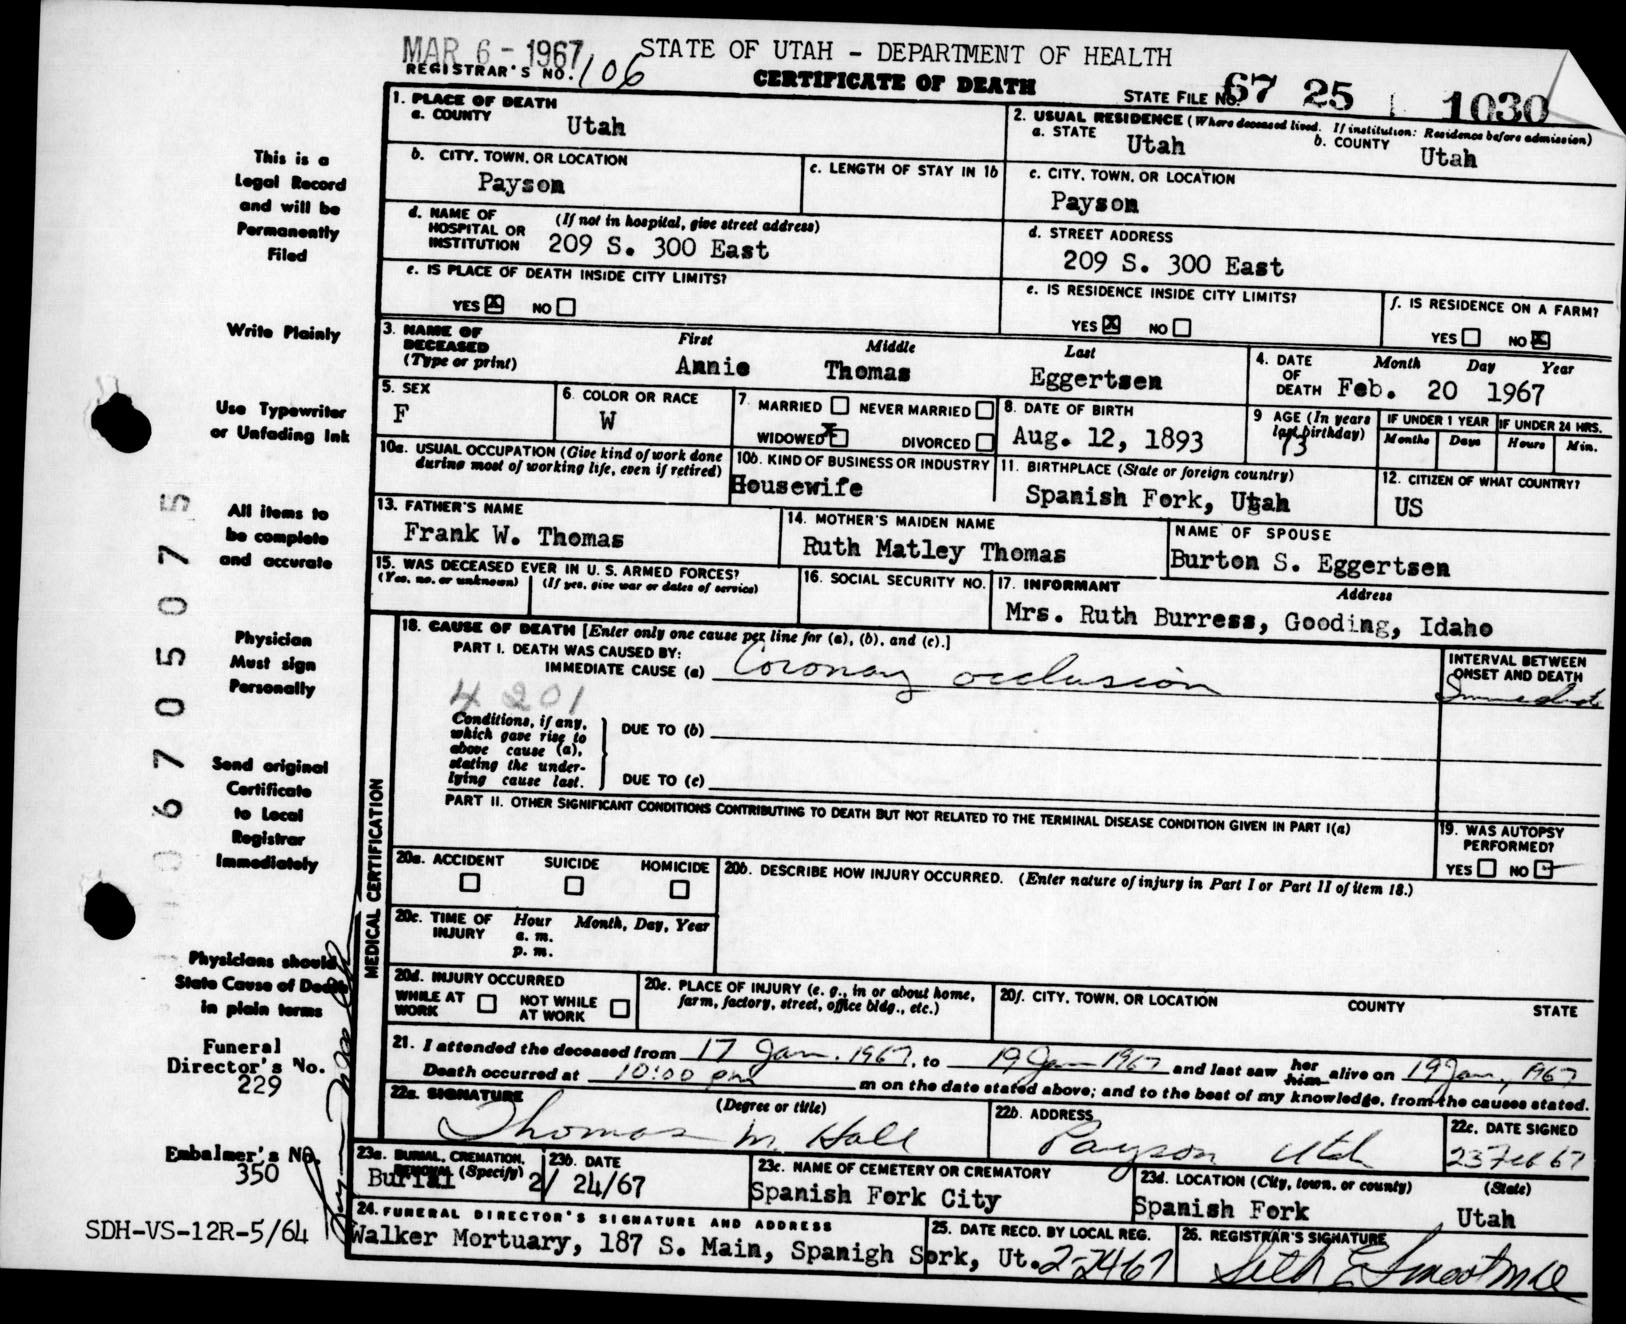 MAR 6 - 1967 STATE OF UTAH - DEPARTMENT OF HEALTH
REGISTRAR'S NO. 106 CERTIFICATE OF DEATH STATE FILE NO. 67 25 1030
1. PLACE OF DEATH
a. COUNTY Utah
2. USUAL RESIDENCE (Where deceased lived. If institution: Residence before admission)
a. STATE Utah b. COUNTY Utah
b. CITY, TOWN, OR LOCATION Payson
c. LENGTH OF STAY IN 1b
c. CITY, TOWN, OR LOCATION
Payson
d. NAME OF HOSPITAL OR INSTITUTION (If not in hospital, give street address)
209 S. 300 East
d. STREET ADDRESS
209 S. 300 East
e. IS PLACE OF DEATH INSIDE CITY LIMITS?
YES X NO
e. IS RESIDENCE INSIDE CITY LIMITS?
YES X NO
f. IS RESIDENCE ON A FARM?
YES NO X
3. NAME OF DECEASED (Type or print) First Middle Last
Annie Thomas Eggertsen
4. DATE OF DEATH Month Day Year
Feb. 20 1967
5. SEX
F
6. COLOR OR RACE
W
7. MARRIED NEVER MARRIED
WIDOWED X DIVORCED
8. DATE OF BIRTH
Aug. 12, 1893
9 AGE (In years last birthday)
73
IF UNDER 1 YEAR IF UNDER 24 HRS.
Months Days Hours Min.
10a. USUAL OCCUPATION (Give kind of work done during most of working life, even if retired)
10b. KIND OF BUSINESS OR INDUSTRY
Housewife
11. BIRTHPLACE (State or foreign country)
Spanish Fork, Utah
12. CITIZEN OF WHAT COUNTRY?
US
13. FATHER'S NAME
Frank W. Thomas
14. MOTHER'S MAIDEN NAME
Ruth Matley Thomas
NAME OF SPOUSE
Burton S. Eggertsen
15. WAS DECEASED EVER IN U. S. ARMED FORCES?
(Yes, no, or unknown) (If yes, give war or dates of service)
16. SOCIAL SECURITY NO.
17. INFORMANT Address
Mrs. Ruth Burress, Gooding, Idaho
MEDICAL CERTIFICATION
18. CAUSE OF DEATH [Enter only one cause per line for (a), (b), and (c).]
PART I. DEATH WAS CAUSED BY:
IMMEDIATE CAUSE (a) Coronay occlusion
INTERVAL BETWEEN ONSET AND DEATH
Immediate
4201
Conditions, if any, which gave rise to above cause (a), stating the underlying cause last.
DUE TO (b)
DUE TO (c)
PART II. OTHER SIGNIFICANT CONDITIONS CONTRIBUTING TO DEATH BUT NOT RELATED TO THE TERMINAL DISEASE CONDITION GIVEN IN PART I(a)
19. WAS AUTOPSY PERFORMED?
YES NO
20a. ACCIDENT SUICIDE HOMICIDE
20b. DESCRIBE HOW INJURY OCCURRED. (Enter nature of injury in Part I or Part II of item 18.)
20c. TIME OF INJURY Hour Month, Day, Year
a. m.
p. m.
20d. INJURY OCCURRED
WHILE AT WORK NOT WHILE AT WORK
20e. PLACE OF INJURY (e. g., in or about home, farm, factory, street, office bldg., etc.)
20f. CITY, TOWN, OR LOCATION COUNTY STATE
21. I attended the deceased from 17 Jan. 1967, to 19 Jan 1967 and last saw her him alive on 19 Jan, 1967
Death occurred at 10:00 pm m on the date stated above; and to the best of my knowledge, from the causes stated.
22a. SIGNATURE (Degree or title)
Thomas M. Hall
22b. ADDRESS
Payson Utah
22c. DATE SIGNED
23 Feb 67
23a. BURIAL, CREMATION, REMOVAL (Specify)
Burial
23b. DATE
2/ 24/67
23c. NAME OF CEMETERY OR CREMATORY
Spanish Fork City
23d. LOCATION (City, town, or county) (State)
Spanish Fork Utah
24. FUNERAL DIRECTOR'S SIGNATURE AND ADDRESS
Walker Mortuary, 187 S. Main, Spanigh Sork, Ut.
25. DATE RECD. BY LOCAL REG.
2-24-67
26. REGISTRAR'S SIGNATURE
Seth E Smoot MD
This is a
Legal Record
and will be
Permanently
Filed
Write Plainly
Use Typewriter
or Unfading Ink
All items to
be complete
and accurate
Physician
Must sign
Personally
Send original
Certificate
to Local
Registrar
Immediately
Physicians should
State Cause of Death
in plain terms
Funeral
Director's No.
229
Embalmer's No.
350
SDH-VS-12R-5/64
067050755